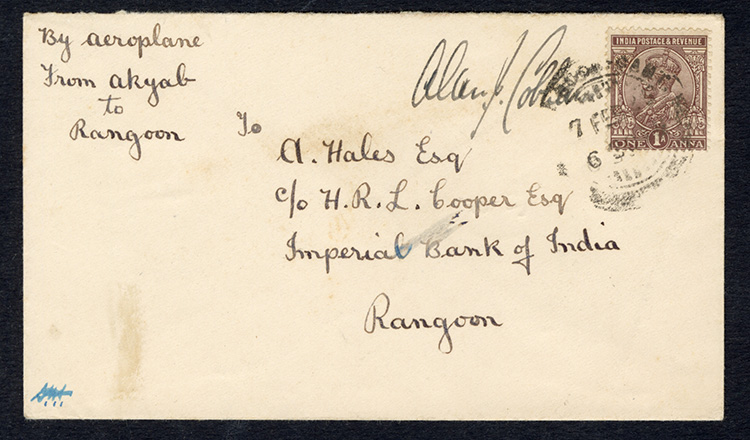 By aeroplane
From akyab
to
Rangoon
Alan J. Cobham
INDIA POSTAGE & REVENUE
ONE 1A ANNA
7 FEB
6
To
A. Hales Esq
c/o H. R. L. Cooper Esq
Imperial Bank of India
Rangoon